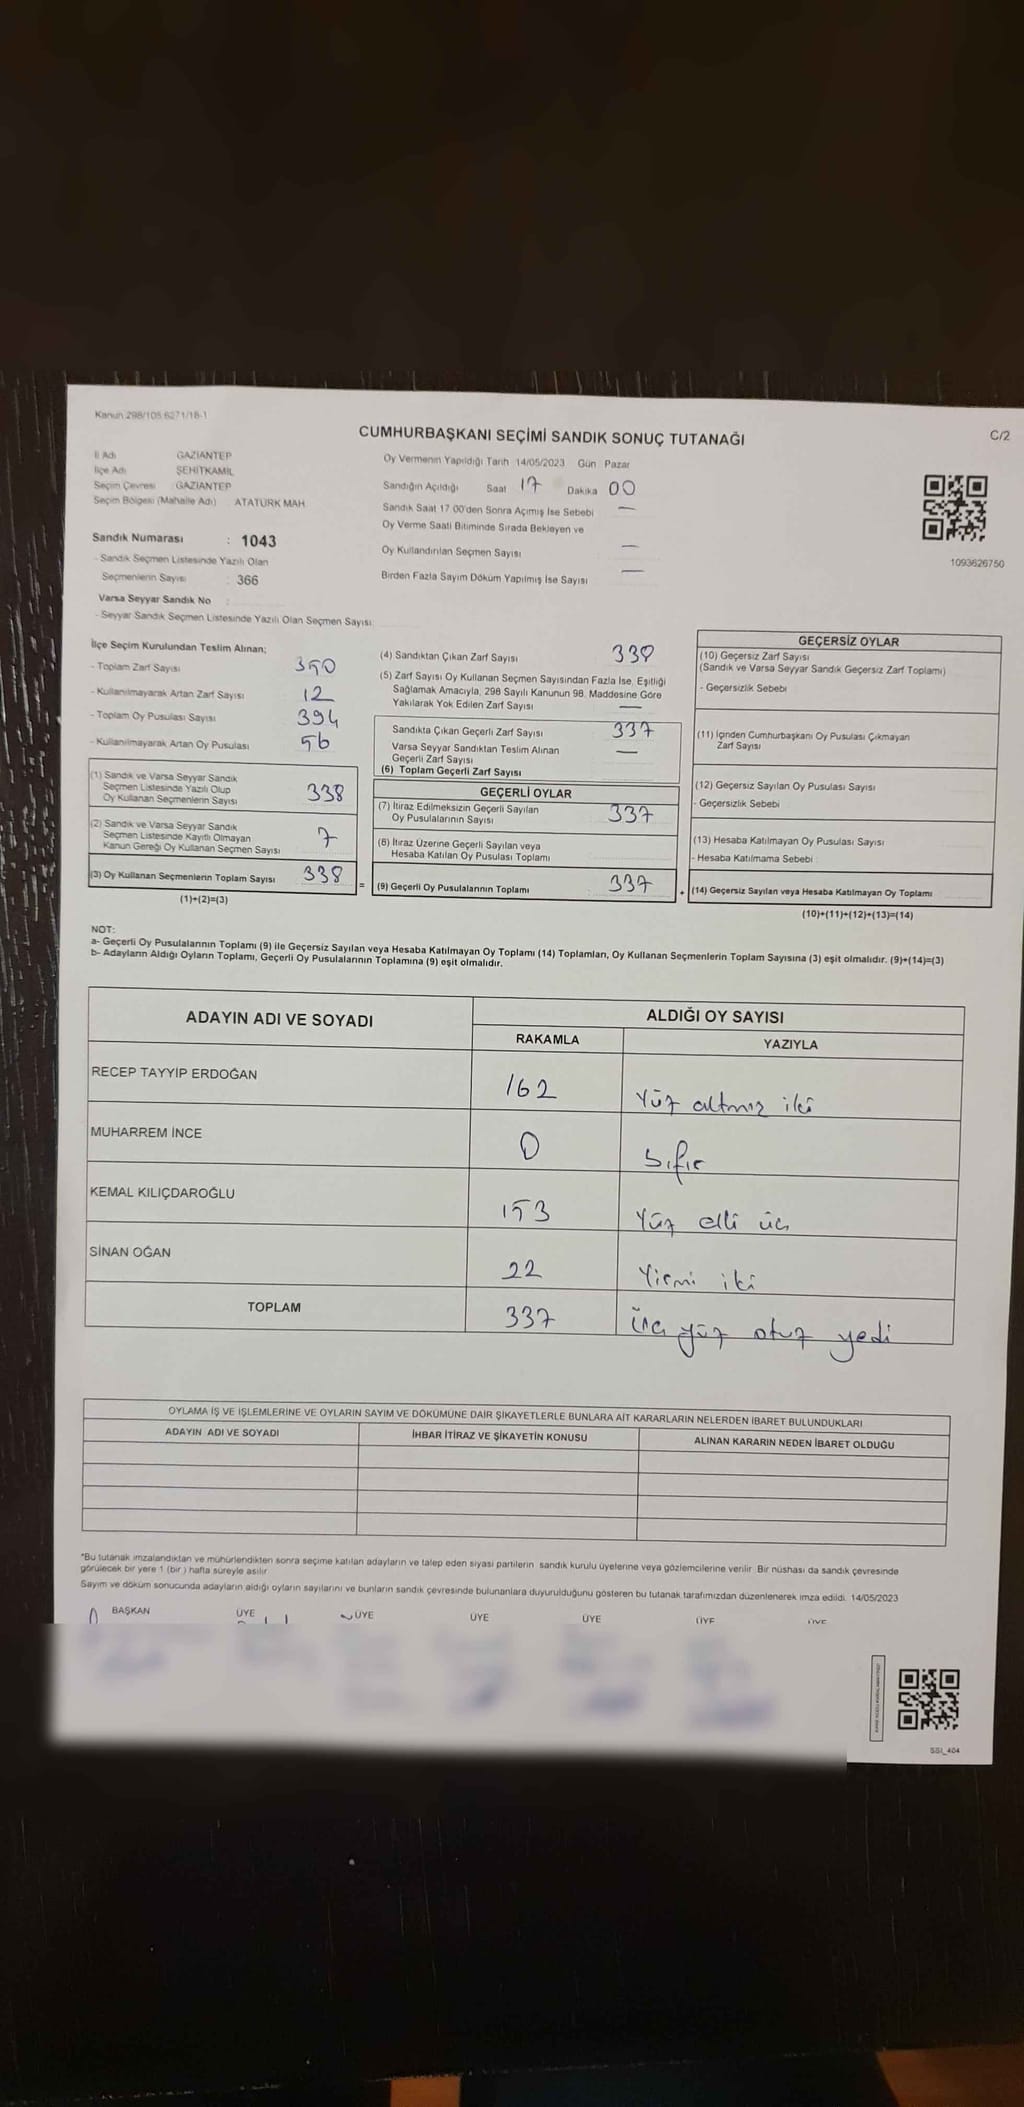 Kanun 298/105 6271/18-1
CUMHURBAŞKANI SEÇİMİ SANDIK SONUÇ TUTANAĞI
C/2
İl Adı GAZİANTEP
İlçe Adı ŞEHİTKAMİL
Seçim Çevresi : GAZİANTEP
Seçim Bölgesi (Mahalle Adı) ATATÜRK MAH
Sandık Numarası : 1043
- Sandık Seçmen Listesinde Yazılı Olan
Seçmenlerin Sayısı : 366
Varsa Seyyar Sandık No :
- Seyyar Sandık Seçmen Listesinde Yazılı Olan Seçmen Sayısı:
Oy Vermenin Yapıldığı Tarih 14/05/2023 Gün Pazar
Sandığın Açıldığı Saat 17 Dakika 00
Sandık Saat 17.00'den Sonra Açımış İse Sebebi —
Oy Verme Saati Bitiminde Sırada Bekleyen ve
Oy Kullandırılan Seçmen Sayısı —
Birden Fazla Sayım Döküm Yapılmış İse Sayısı —
1093626750
İlçe Seçim Kurulundan Teslim Alınan;
- Toplam Zarf Sayısı 350
- Kullanılmayarak Artan Zarf Sayısı 12
- Toplam Oy Pusulası Sayısı 394
- Kullanılmayarak Artan Oy Pusulası 56
(1) Sandık ve Varsa Seyyar Sandık
Seçmen Listesinde Yazılı Olup
Oy Kullanan Seçmenlerin Sayısı 338
(2) Sandık ve Varsa Seyyar Sandık
Seçmen Listesinde Kayıtlı Olmayan
Kanun Gereği Oy Kullanan Seçmen Sayısı 7
(3) Oy Kullanan Seçmenlerin Toplam Sayısı 338
(1)+(2)=(3)
=
(4) Sandıktan Çıkan Zarf Sayısı 338
(5) Zarf Sayısı Oy Kullanan Seçmen Sayısından Fazla İse, Eşitliği
Sağlamak Amacıyla, 298 Sayılı Kanunun 98. Maddesine Göre
Yakılarak Yok Edilen Zarf Sayısı —
Sandıkta Çıkan Geçerli Zarf Sayısı 337
Varsa Seyyar Sandıktan Teslim Alınan
Geçerli Zarf Sayısı —
(6) Toplam Geçerli Zarf Sayısı
GEÇERLİ OYLAR
(7) İtiraz Edilmeksizin Geçerli Sayılan
Oy Pusulalarının Sayısı 337
(8) İtiraz Üzerine Geçerli Sayılan veya
Hesaba Katılan Oy Pusulası Toplamı
(9) Geçerli Oy Pusulalarının Toplamı 337
+
GEÇERSİZ OYLAR
(10) Geçersiz Zarf Sayısı
(Sandık ve Varsa Seyyar Sandık Geçersiz Zarf Toplamı)
- Geçersizlik Sebebi
(11) İçinden Cumhurbaşkanı Oy Pusulası Çıkmayan
Zarf Sayısı
(12) Geçersiz Sayılan Oy Pusulası Sayısı
- Geçersizlik Sebebi
(13) Hesaba Katılmayan Oy Pusulası Sayısı
- Hesaba Katılmama Sebebi :
(14) Geçersiz Sayılan veya Hesaba Katılmayan Oy Toplamı
(10)+(11)+(12)+(13)=(14)
NOT:
a- Geçerli Oy Pusulalarının Toplamı (9) ile Geçersiz Sayılan veya Hesaba Katılmayan Oy Toplamı (14) Toplamları, Oy Kullanan Seçmenlerin Toplam Sayısına (3) eşit olmalıdır. (9)+(14)=(3)
b- Adayların Aldığı Oyların Toplamı, Geçerli Oy Pusulalarının Toplamına (9) eşit olmalıdır.
ADAYIN ADI VE SOYADI ALDIĞI OY SAYISI
RAKAMLA YAZIYLA
RECEP TAYYİP ERDOĞAN 162 Yüz altmış iki
MUHARREM İNCE 0 sıfır
KEMAL KILIÇDAROĞLU 153 Yüz elli üç
SİNAN OĞAN 22 Yirmi iki
TOPLAM 337 üç yüz otuz yedi
OYLAMA İŞ VE İŞLEMLERİNE VE OYLARIN SAYIM VE DÖKÜMÜNE DAİR ŞİKAYETLERLE BUNLARA AİT KARARLARIN NELERDEN İBARET BULUNDUKLARI
ADAYIN ADI VE SOYADI İHBAR İTİRAZ VE ŞİKAYETİN KONUSU ALINAN KARARIN NEDEN İBARET OLDUĞU
*Bu tutanak imzalandıktan ve mühürlendikten sonra seçime katılan adayların ve talep eden siyasi partilerin sandık kurulu üyelerine veya gözlemcilerine verilir. Bir nüshası da sandık çevresinde
görülecek bir yere 1 (bir ) hafta süreyle asılır
Sayım ve döküm sonucunda adayların aldığı oyların sayılarını ve bunların sandık çevresinde bulunanlara duyurulduğunu gösteren bu tutanak tarafımızdan düzenlenerek imza edildi. 14/05/2023
BAŞKAN ÜYE ÜYE ÜYE ÜYE ÜYE ÜYE
SSI_404